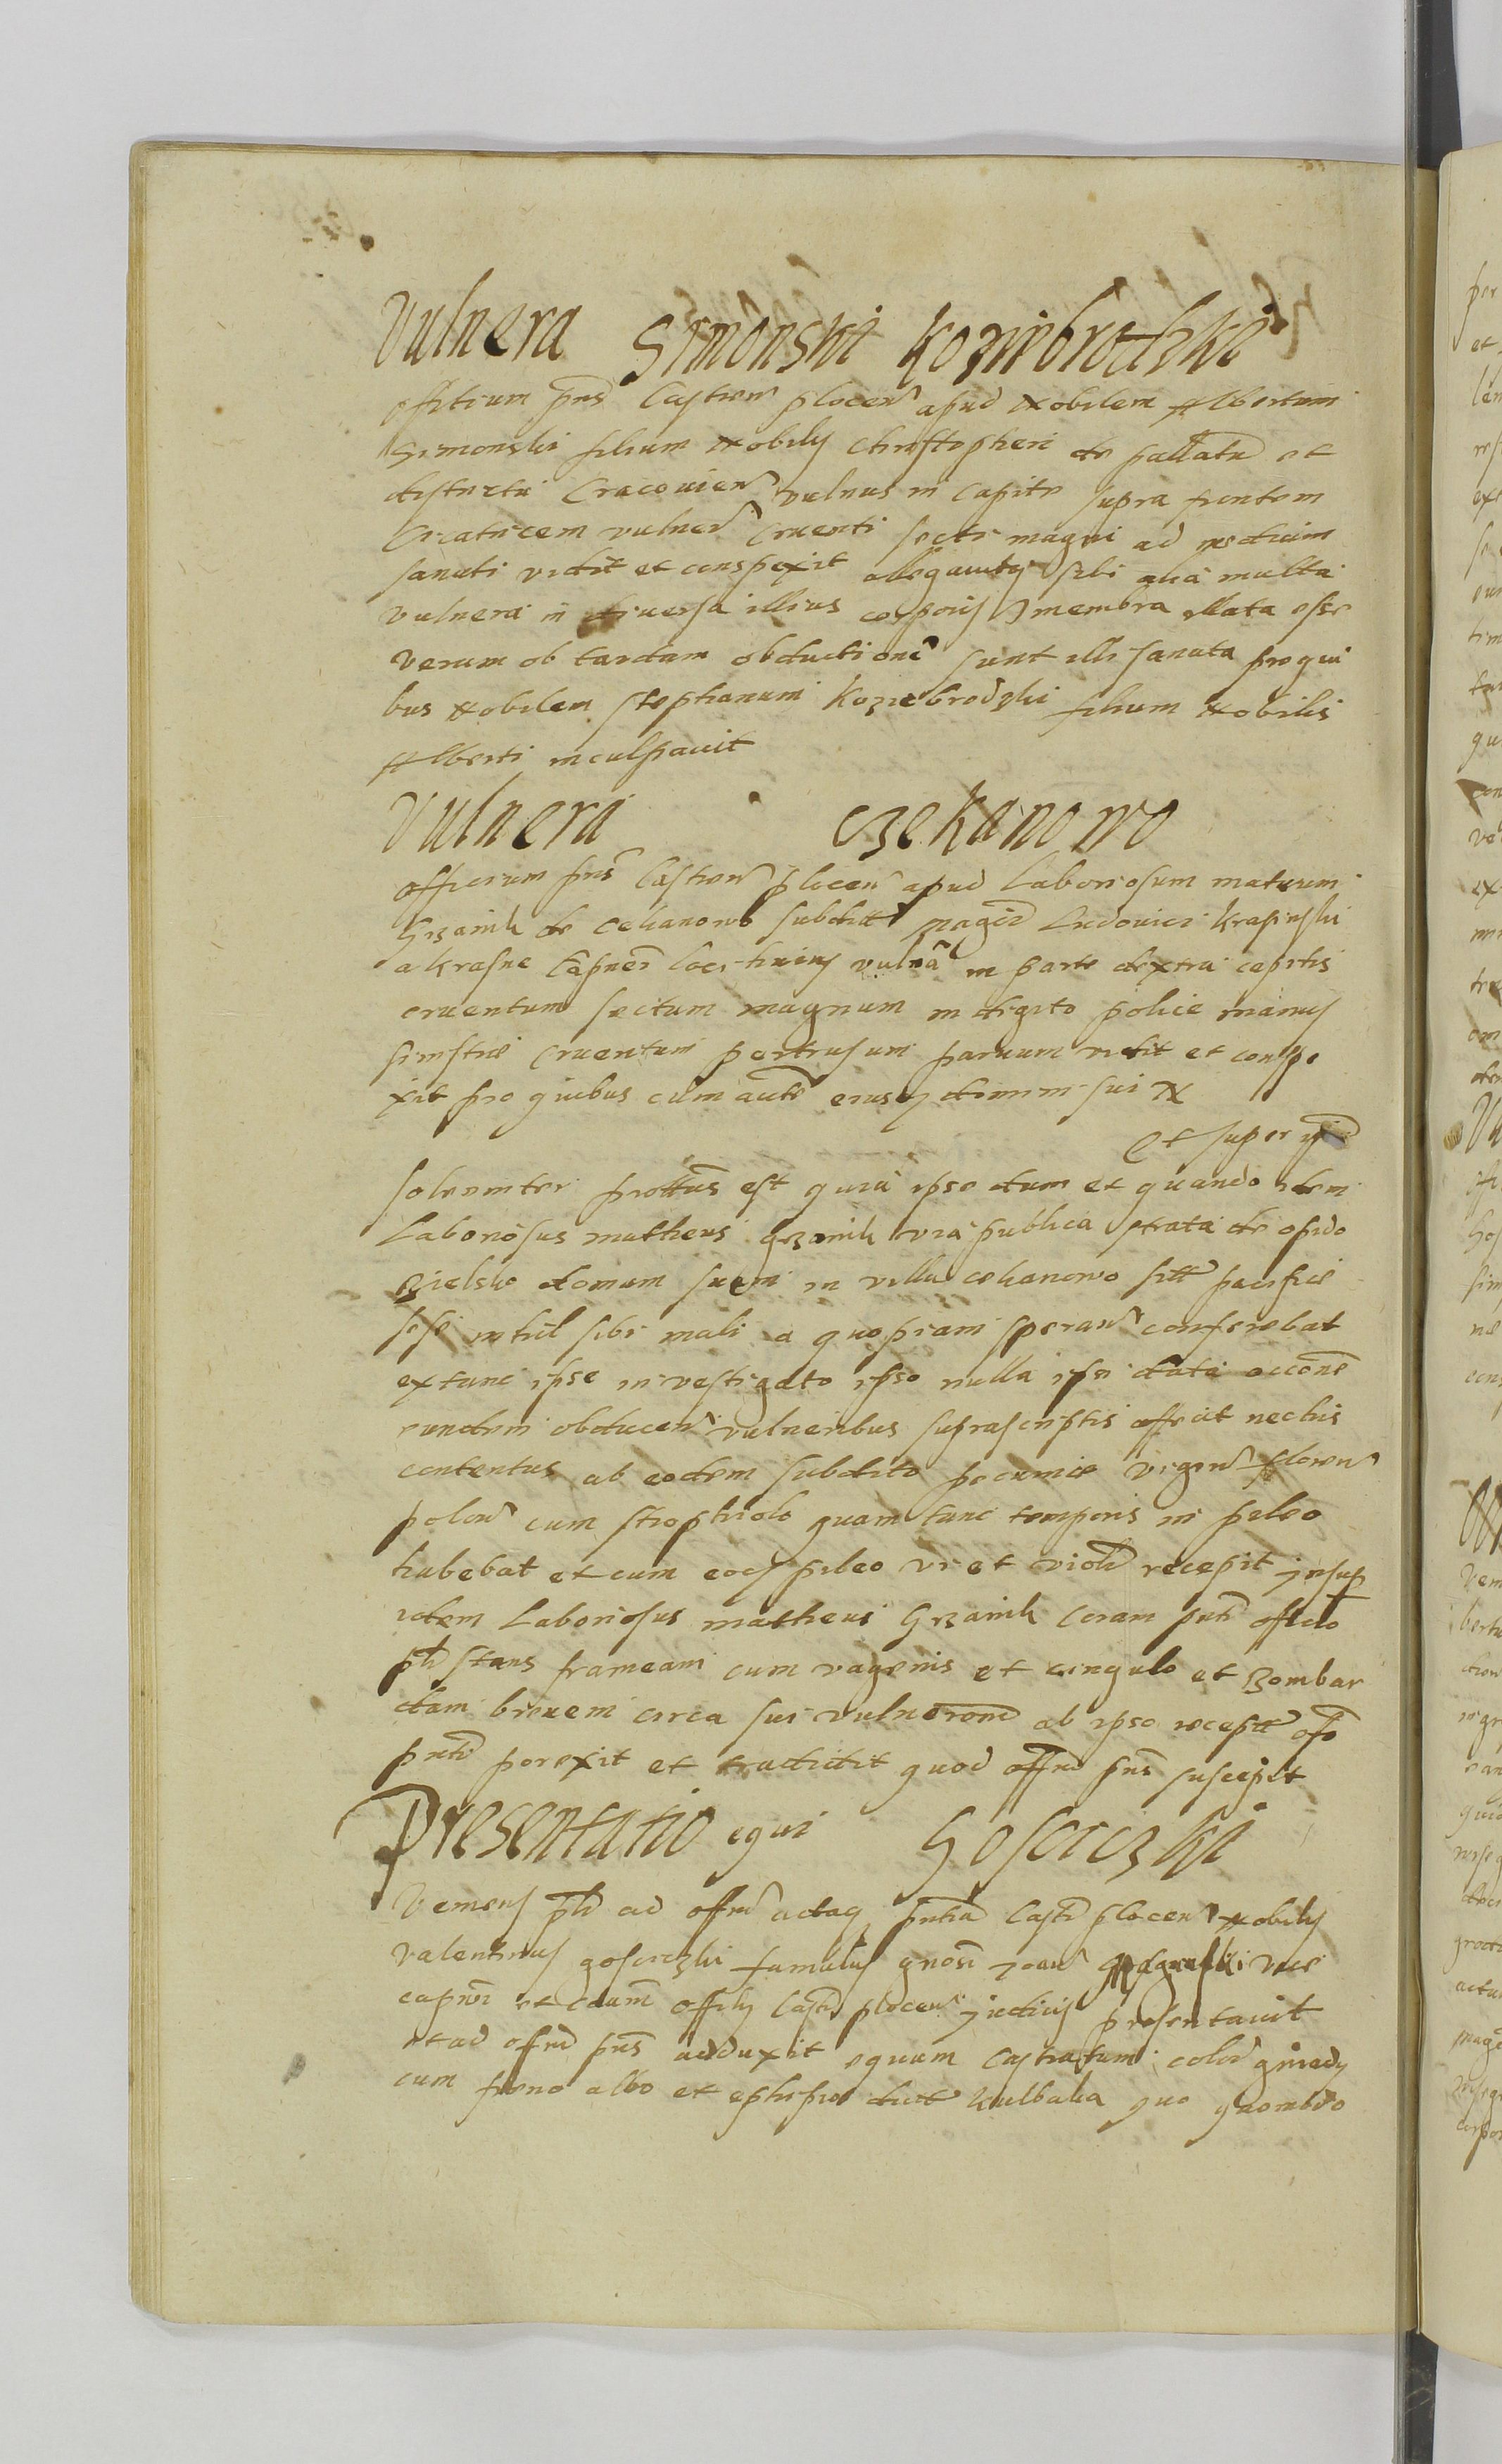 Vulnera Simonski Koziebrodzki
Offitium pns Castren plocen apud Nobilem Albertum
Simonski filium Nobilis Christopheri de pallatu et
districtu Cracovien vulnus in capite supra frontem
Cicatricem vulner cruenti secti magni ad medium
sanati vidit et conspexit sibi alia multa
vulnera in diversa illius corporis membra illata esse
verum ob tardam obductionem sunt illi sanata pro qui
bus Nobilem Stephanum Koziebrodzki filium Nobilis
Alberti inculpavit
Vulnera Czekanowo
Officium pns Castren plocen apud Laboriosum
Grzanik de Cekanowo subditu magci Ludovici Krasinski
a Krasne in parte dextra capitis
cruentum sectum magnum in digito police manus
sinistre cruentum pertrusum parvum vidit et conspe
xit pro quibus cum aucte eiusq domini sui N
Et super
solenniter prottus est quia ipse dum et quando idem
Laboriosus Matheus Grzanik via publica strata de opido
Bielsko domum suam in villa Cekanowo sitt pacifice
sese nihil sibi mali a quopiam speran conferebat
extunc ipse investigato ipso nulla ipsi data occone
eundem obducen vulneribus suprascriptis affecit nec his
contentus ab eodem subdito pecunie vigin floren
polon cum strophiolo quam tunc temporis in pileo
habebat et cum eodq pileo vi et violr recepit insup
idem Laboriosus Matheus Grzanik coram pnti officio
plr stans frameam cum vagenis et cingulo et Bombar
dam brevem circa sui vulneronem ab ipso receptt offo
pnti porexit et tradidit quod offm pns suscepit
Presentatio equi Goscicski
Veniens plr ad offm actaq pntia castr plocen Nobilis
Valentinus Goscicski famulus gnosi Joan vice
capnei et offitiq castr plocen judicis presentavit
et ad offm pns adduxit equum castratum color gniedy
cum freno albo et ephipio dict kulbaka quo